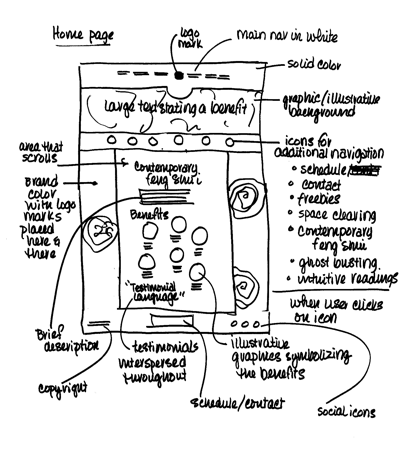 Home page
logo
mark
main nav in white
solid color
Large text stating a benefit
graphic/illustrative
background
area that
scrolls
icons for
additional navigation
• schedule/
• contact
• freebies
• space clearing
• contemporary
feng shui
• ghost busting
• intuitive readings
when user clicks
on icon
Contemporary
feng shui
Brand
color
with logo
marks
placed
here &
there
Benefits
"Testimonial
Language"
Brief
description
testimonials
interspersed
throughout
illustrative
graphics symbolizing
the benefits
copyright
schedule/contact
social icons